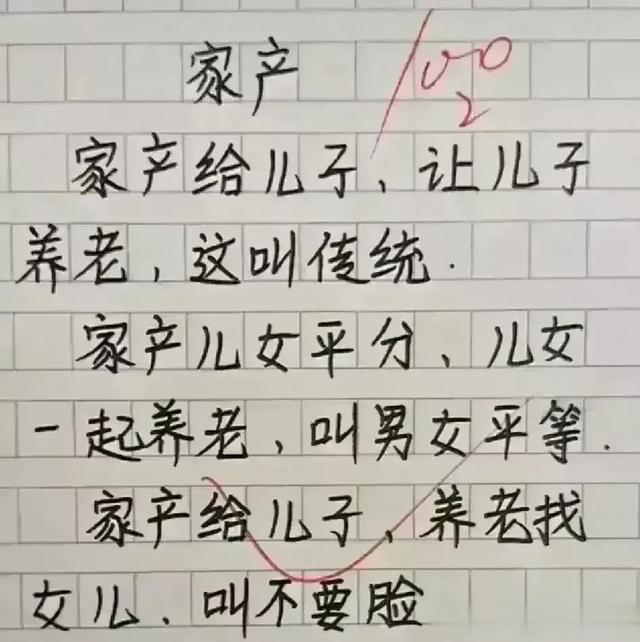 家产
100
2
家产给儿子、让儿子
养老，这叫传统.
家产儿女平分、儿女
一起养老，叫男女平等.
家产给儿子、养老找
女儿、叫不要脸